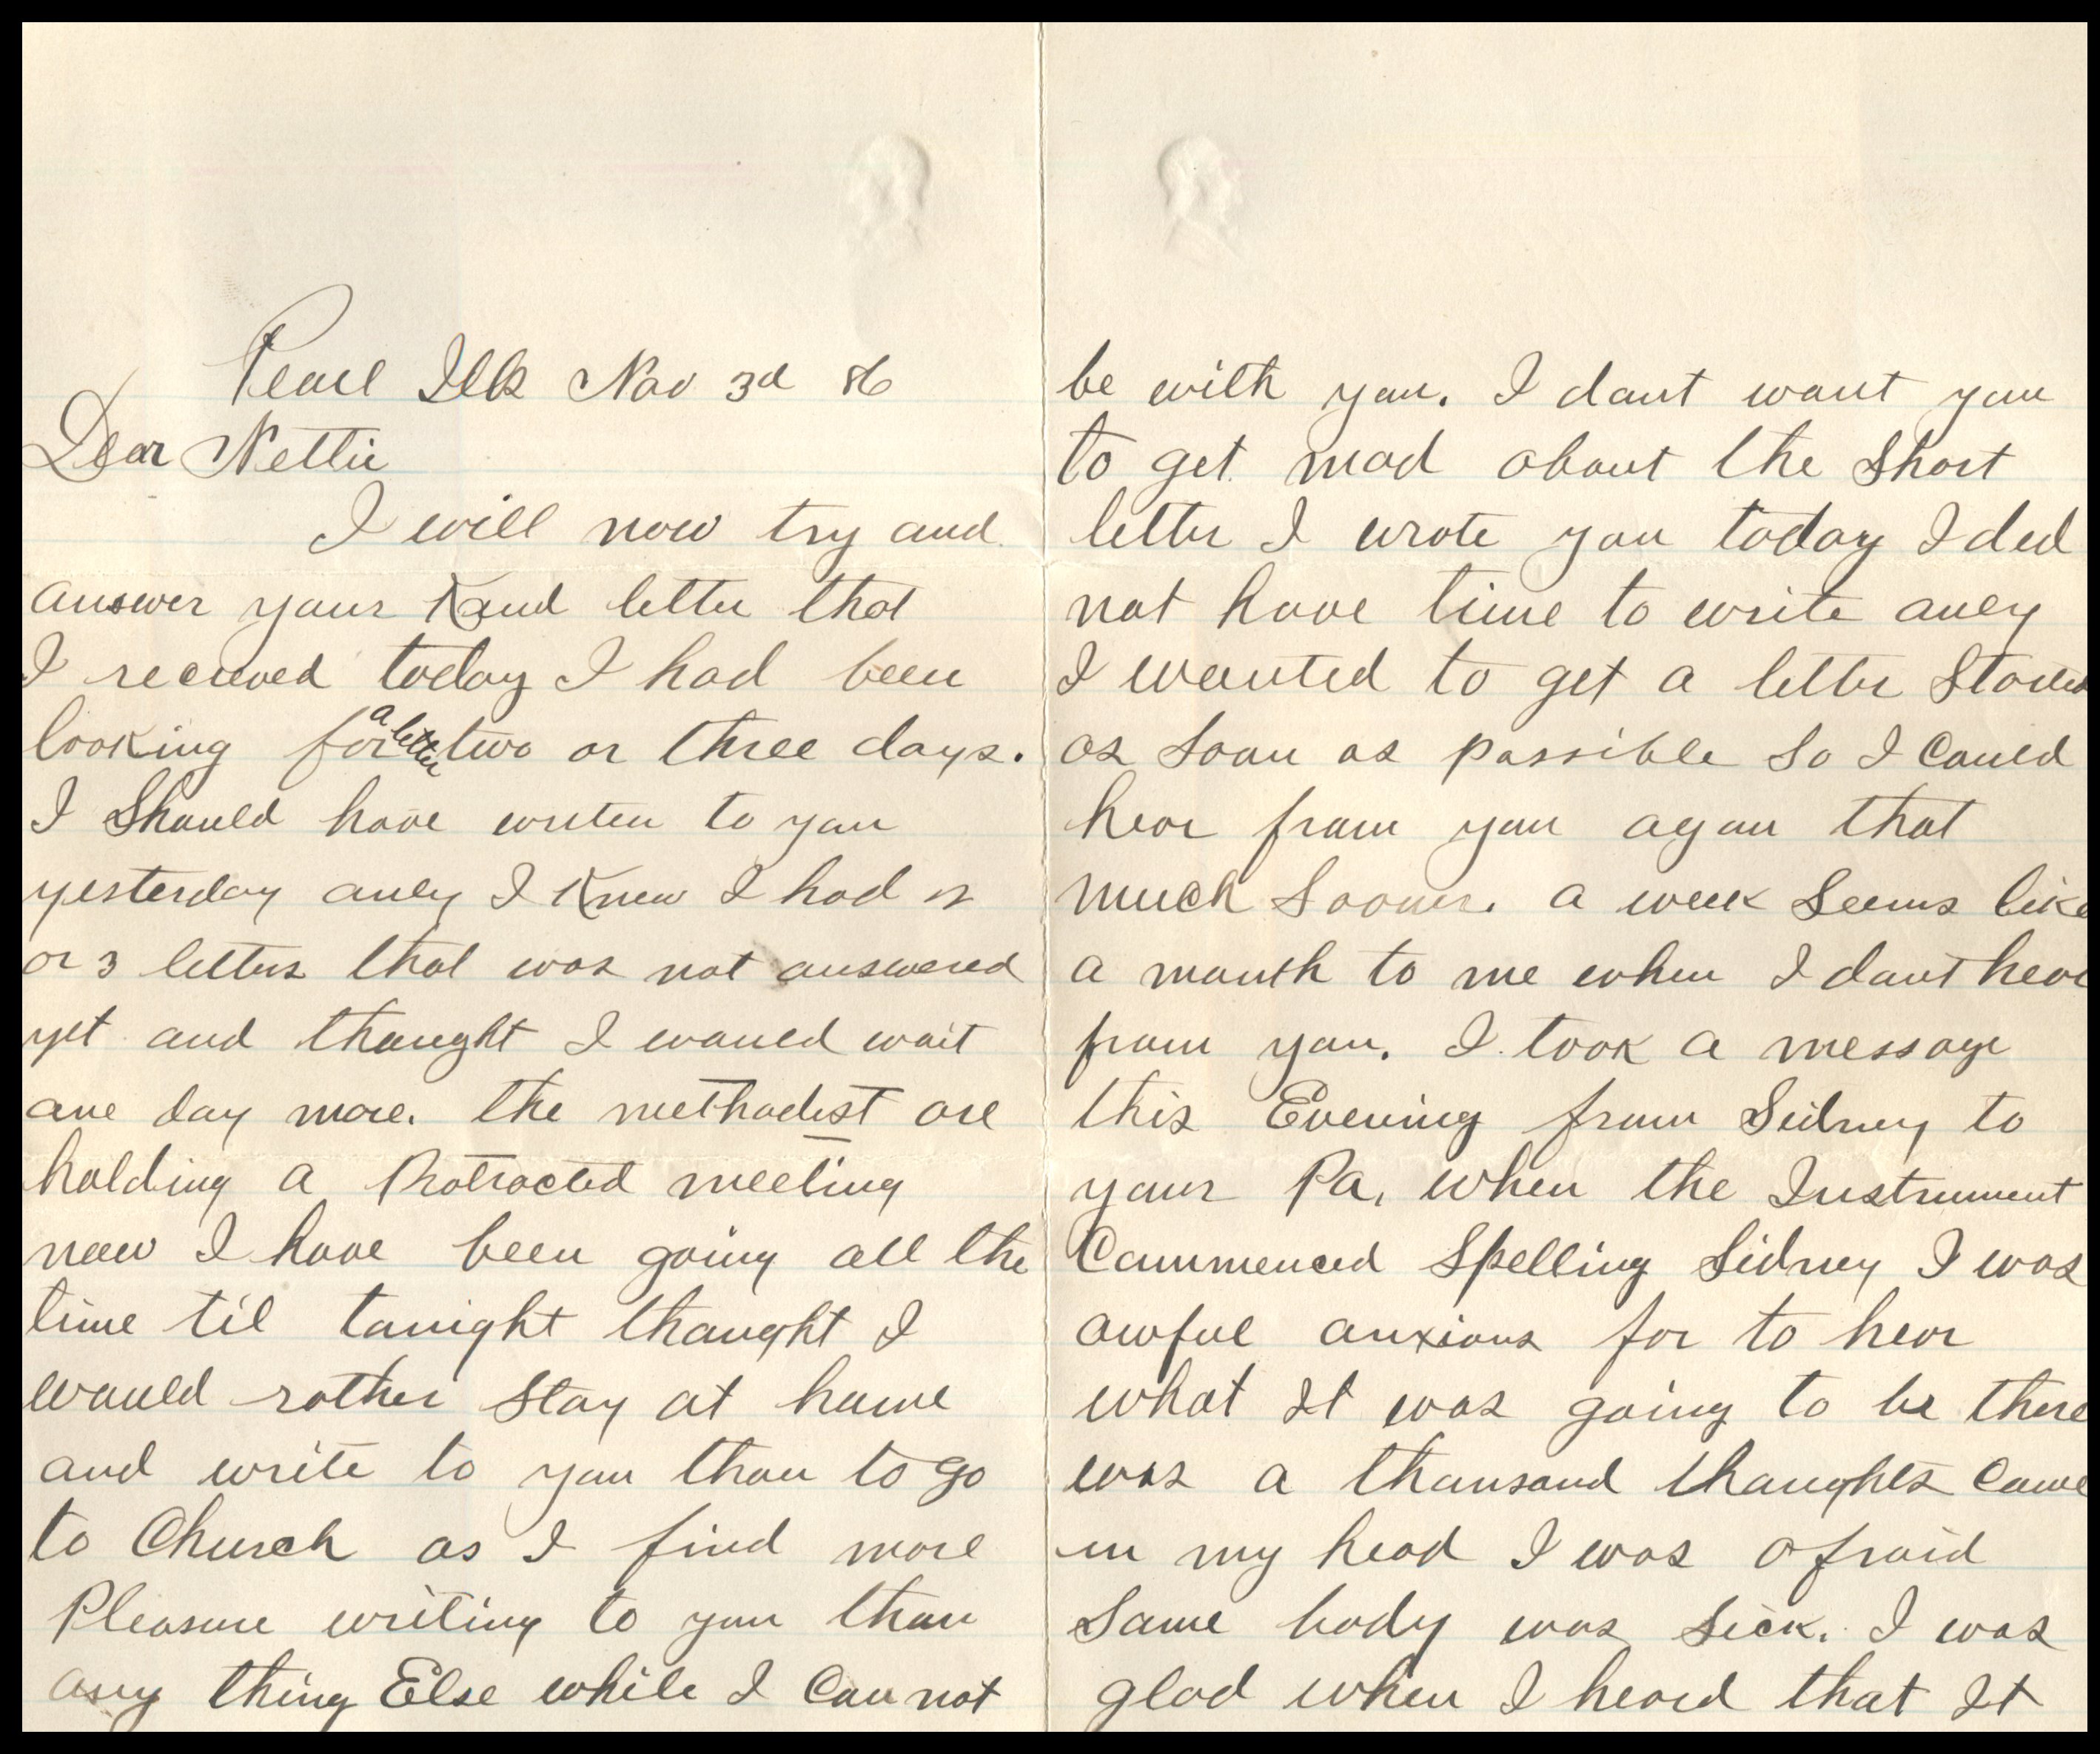 Pearl Ills Nov 3d 86
Dear Nettie
I will now try and
answer your Kind letter that
I recieved today I had been
looking for a letter two or three days.
I Should have writen to you
yesterday only I Knew I had 2
or 3 letters that was not answered
yet and thought I would wait
one day more. the methodist are
holding a Protracted meeting
now I have been going all the
time til tonight thought I
would rather Stay at home
and write to you than to go
to Church as I find more
Pleasure writing to you than
any thing Else while I Can not
be with you. I dont want you
to get mad about the Short
letter I wrote you today I did
not have time to write
I wanted to get a letter Started
as Soon as possible So I Could
hear from you again that
much Sooner. a week Seems like
a month to me when I dont hear
from you. I took a message
this Evening from Sidney to
your Pa, when the Instrument
Commenced Spelling Sidney I was
awful anxious for to hear
what It was going to be there
was a thousand thoughts Came
in my head I was afraid
Some body was Sick. I was
glad when I heard that It